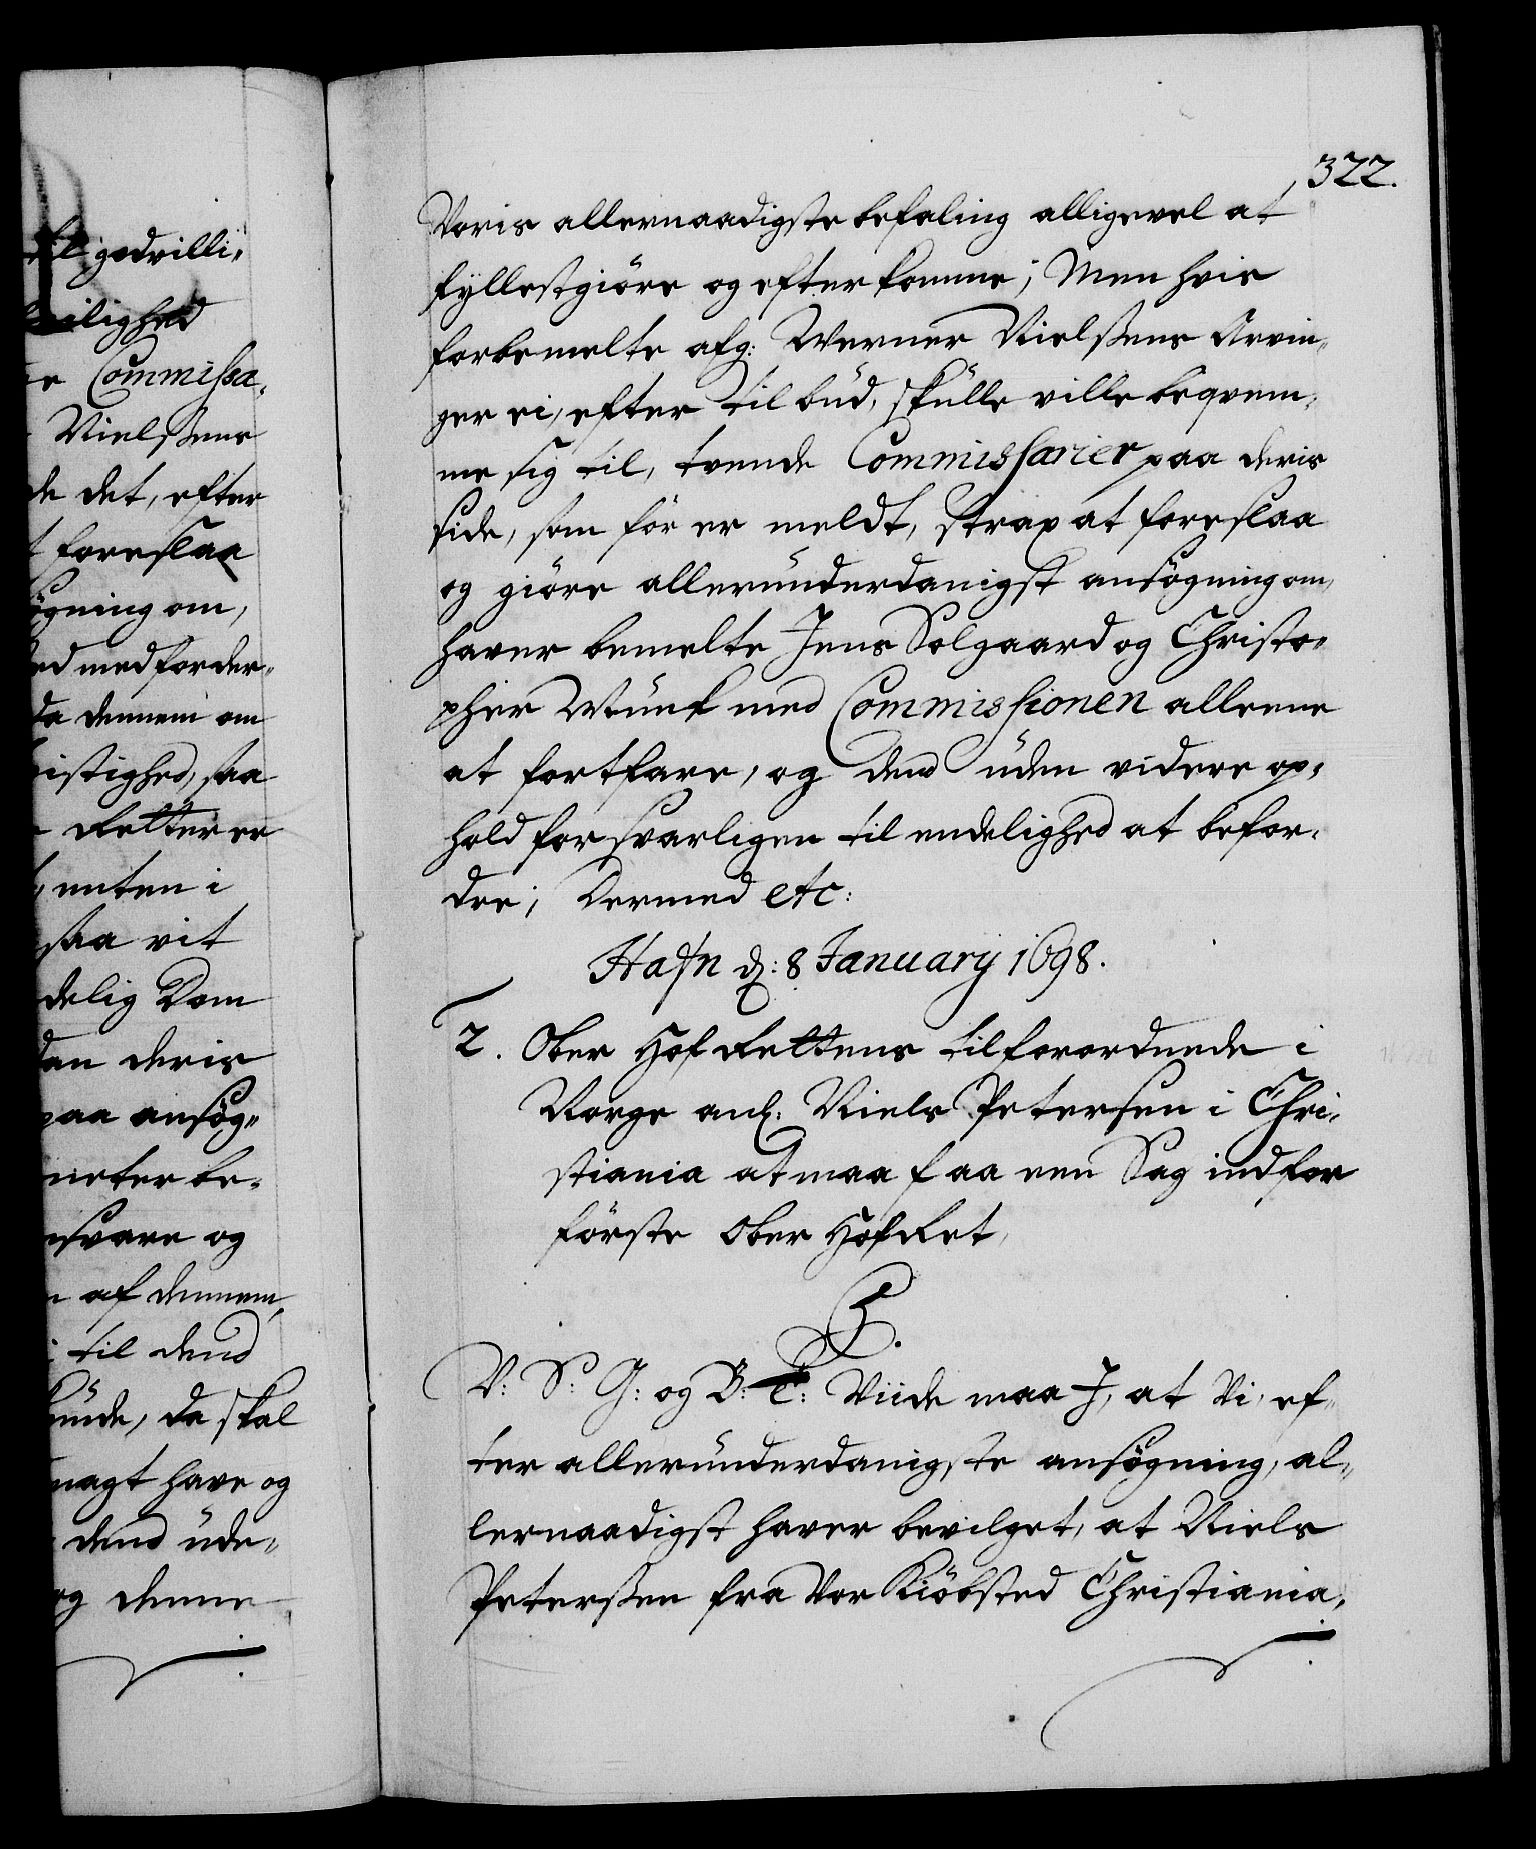 til godvilli¬
lighed
Commissa¬
Nielssens
de det, efter
foreslaa
søgning om,
med forder¬
da dennem om
istighed, saa
Retter er
enten i
saa vit
delig Dom
dan deris
paa ansøg¬
neter be¬
svare og
af dennem,
til dend
da skal
magt have og
dend ude¬
og denne
322.
Voris allernaadigste befaling alligevel at
fyllestgiöre og efterkomme; Men hvis
forbemelte afg: Werner Nielssens Arvin¬
ger ei, efter tilbud, skulle ville beqvem¬
me sig til, tvende Commissarier paa deris
side, som för er meldt, strax at foreslaa
og giöre allerunderdanigst ansögning om,
haver bemelte Jens Solgaard og Christo¬
pher Munk med Commissionen alleene
at fortfare, og dend uden videre op¬
hold forsvarligen til endelighed at befor¬
dre; Dermed etc:
Hafn d: 8 January 1698.
2. Ober Hof Rettens tilforordnede i
Norge anl: Niels Petersen i Chri¬
stiania at maa faa een Sag ind for
förste Ober Hof Ret,
C5.
V: S: G: og B: t: Viide maa I, at Vi, ef¬
ter allerunderdanigste ansögning, al¬
lernaadigst haver bevilget, at Niels
Peterssen fra Vor Kiöbsted Christiania,